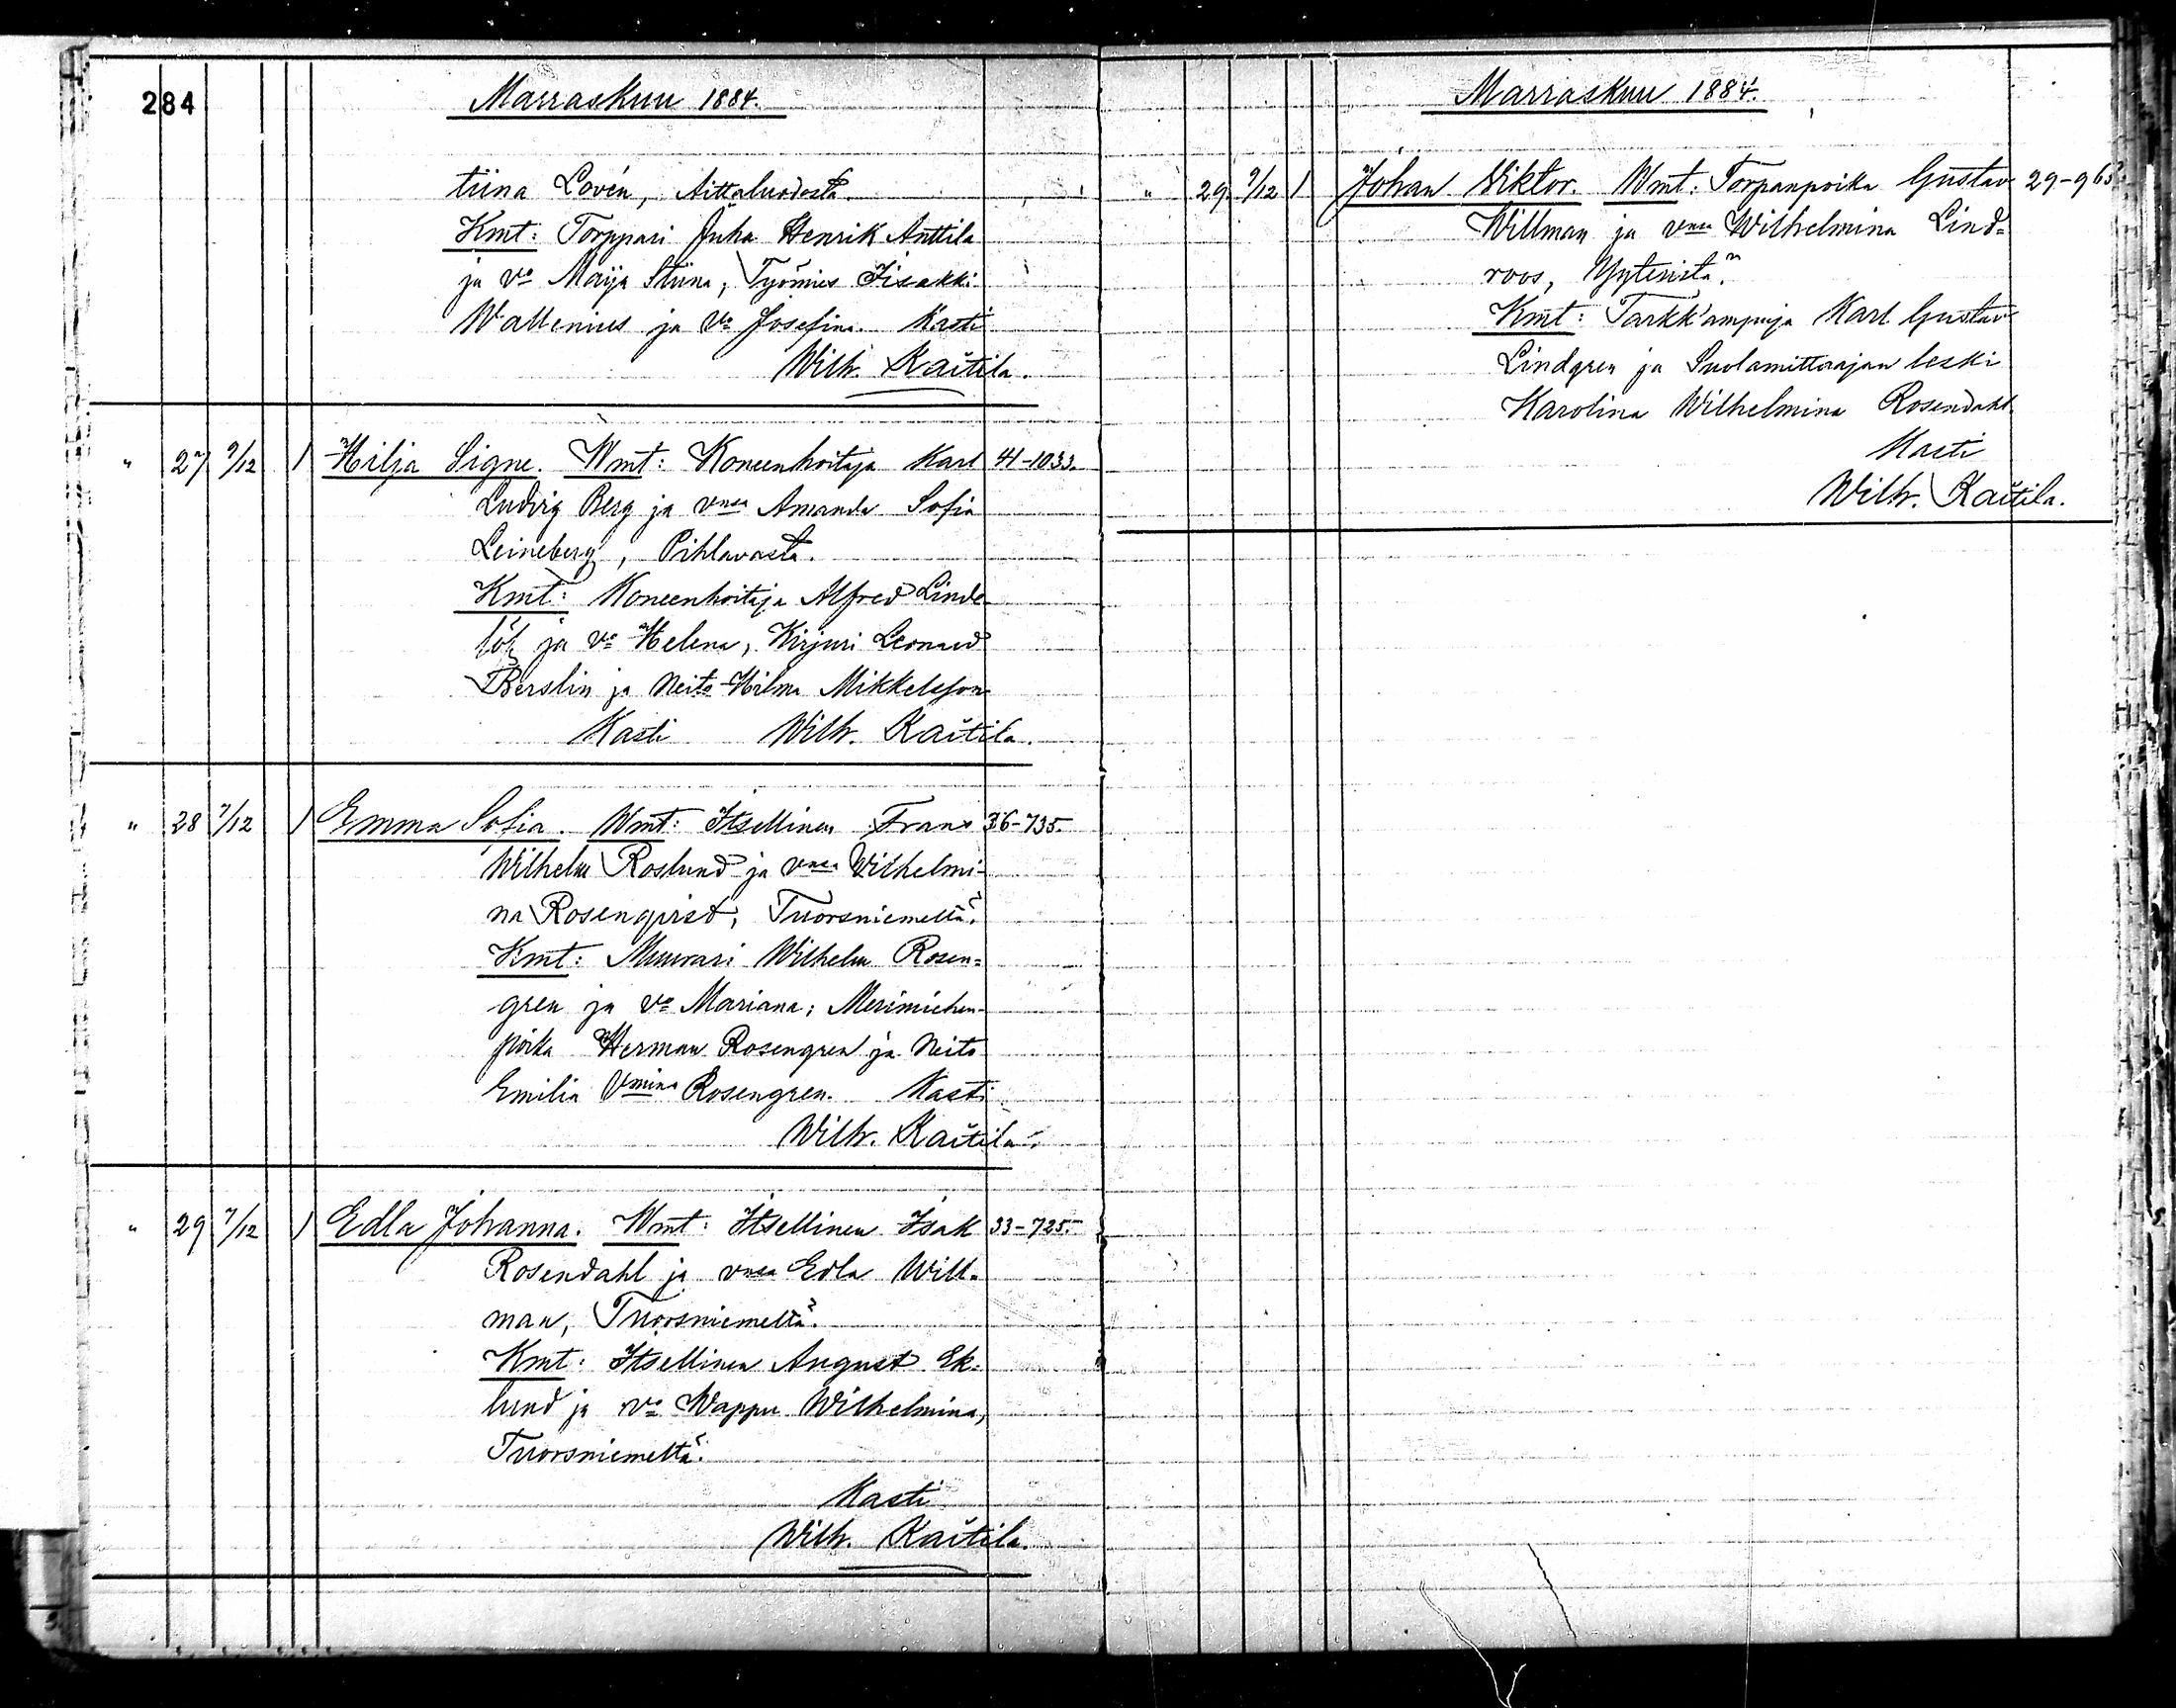 284
Marraskuu 1884.
tiina Lovén, Aittaluodosta.
Kmt: Torppari Juha Henrik Anttila
ja vo Maija Stiina, Työmies Iisakki
Wallenius ja Vo Josefina. Kasti
Wilh. Kaitila.
" 27 9/12 1 Hilja Signe. Wmt: Koneenhoitaja Karl 41-1033.
Ludvig Berg ja vnsa Amanda Sofia
Leineberg, Pihlavasta.
Kmt: Koneenhoitaja Alfred Linde
löf ja vo Helena, Kirjuri Leonard
Berslin ja Neito Hilma Mikkelsson
Kasti Wilh. Kaitila.
" 28 7/12 1 Emma Sofia. Wmt: Itsellinen Frans 36-735.
Wilhelm Roslund ja vnsa Wilhelmi-
na Rosenqvist, Tuorsniemeltä.
Kmt: Muurari Wilhelm Rosen=
gren ja vo Mariana; Merimiehen-
poika Herman Rosengren ja Neito
Emilia Vmina Rosengren. Kasti
Wilh. Kaitila.
" 29 7/12 1 Edla Johanna. Wmt: Itsellinen Isak 33-725.
Rosendahl ja vnsa Edla Will-
man, Tuorsniemeltä.
Kmt: Itsellinen August Ek-
lund ja vo Wappu Wilhelmina,
Tuorsniemeltä.
Kasti
Wilh. Kaitila.
Marraskuu 1884.
" 29 9/12 1 Johan Viktor. Wmt: Torpanpoika Gustav 29-963.
Willman ja vnsa Wilhelmina Lind=
roos, Yyteristä.
Kmt: Tarkk'ampuja Karl Gustav
Lindgren ja Suolamittaajan leski
Karolina Wilhelmina Rosendahl
Kasti
Wilh. Kaitila.